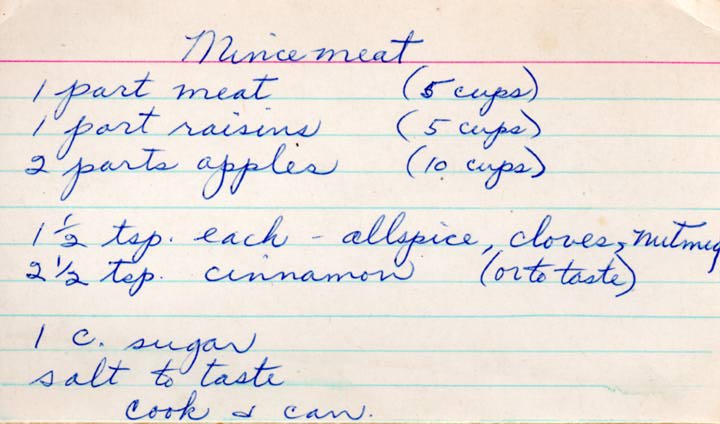 Mincemeat
1 part meat (5 cups)
1 part raisins (5 cups)
2 parts apples (10 cups)
1 1/2 tsp. each - allspice, cloves, nutmeg
2 1/2 tsp. cinnamon (or to taste)
1 c. sugar
salt to taste
cook & can.